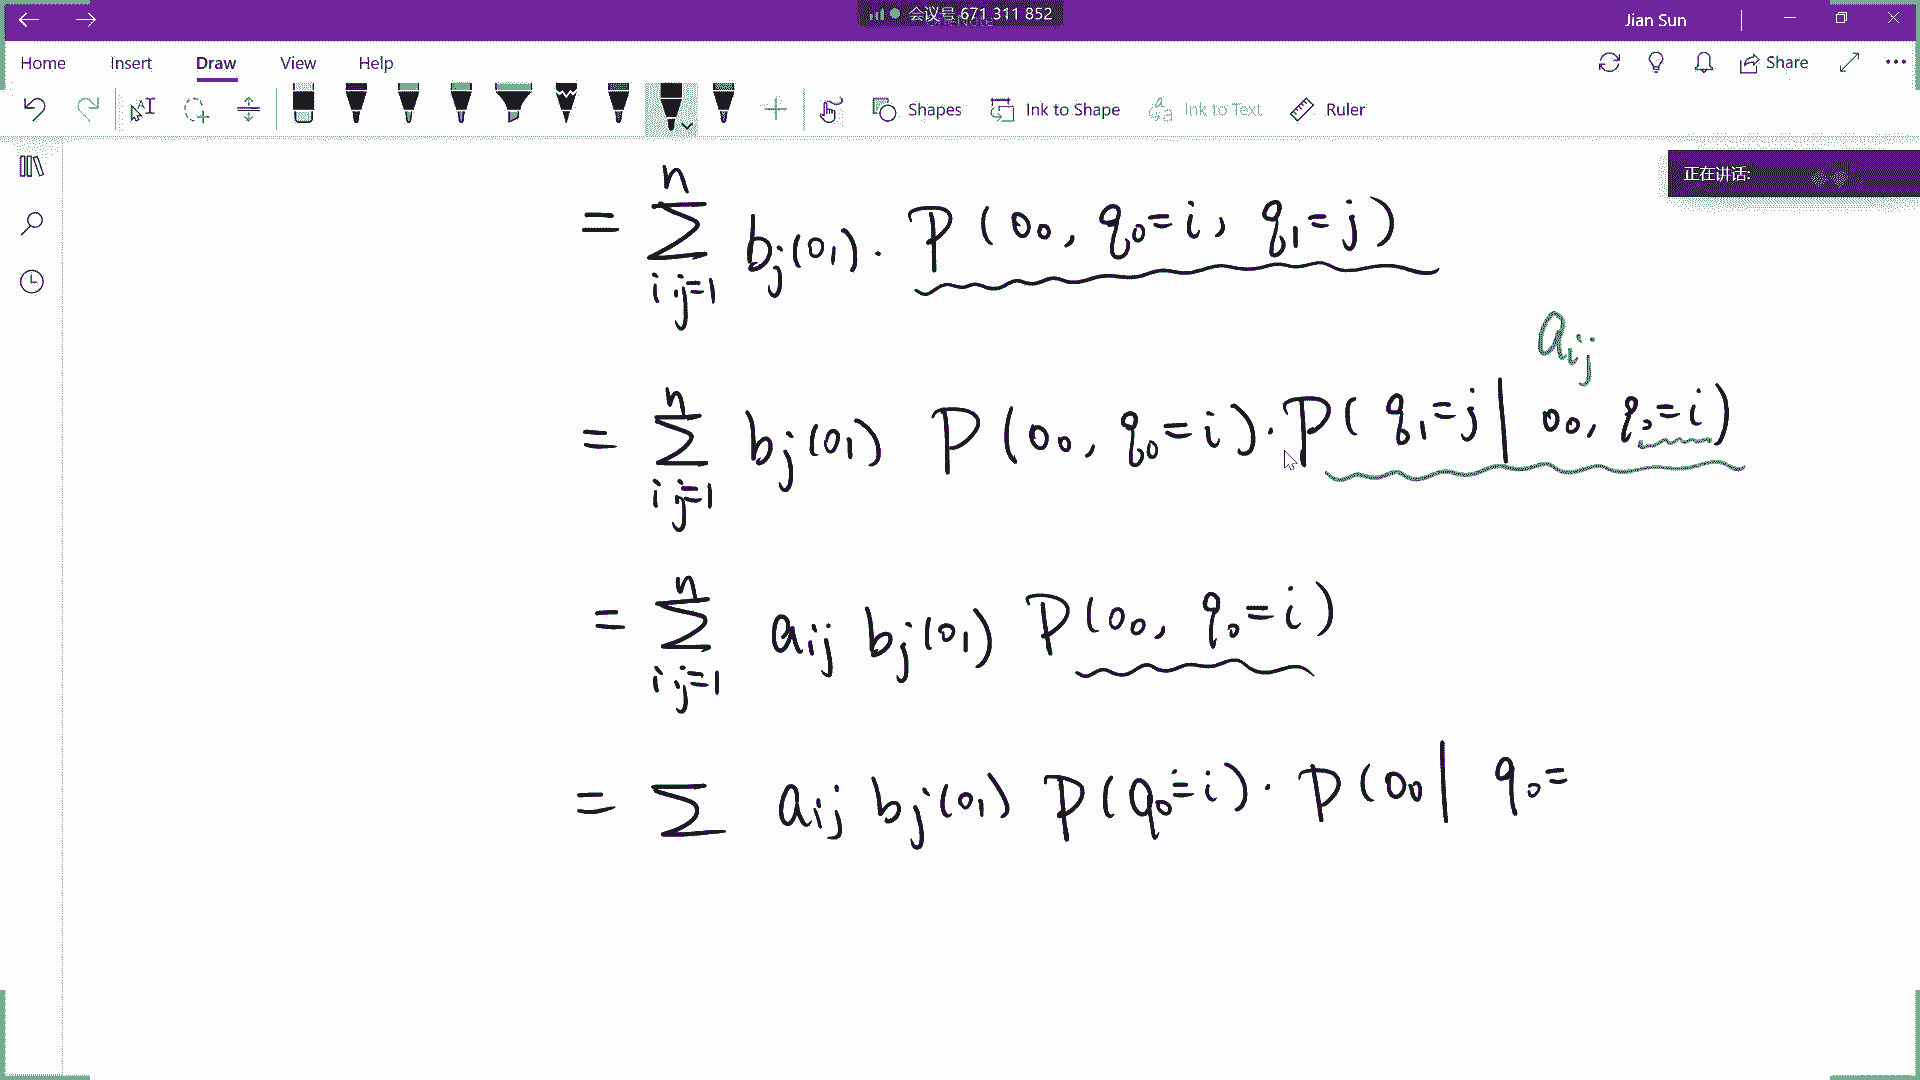 会议号 671 311 852
Jian Sun
Home Insert Draw View Help
Share
Shapes Ink to Shape Ink to Text Ruler
正在讲话:
= \sum_{i,j=1}^{n} b_j(o_1) · P(o_0, q_0=i, q_1=j)
a_{ij}
= \sum_{i,j=1}^{n} b_j(o_1) P(o_0, q_0=i) · P(q_1=j | o_0, q_0=i)
= \sum_{i,j=1}^{n} a_{ij} b_j(o_1) P(o_0, q_0=i)
= \sum a_{ij} b_j(o_1) P(q_0=i) · P(o_0 | q_0=